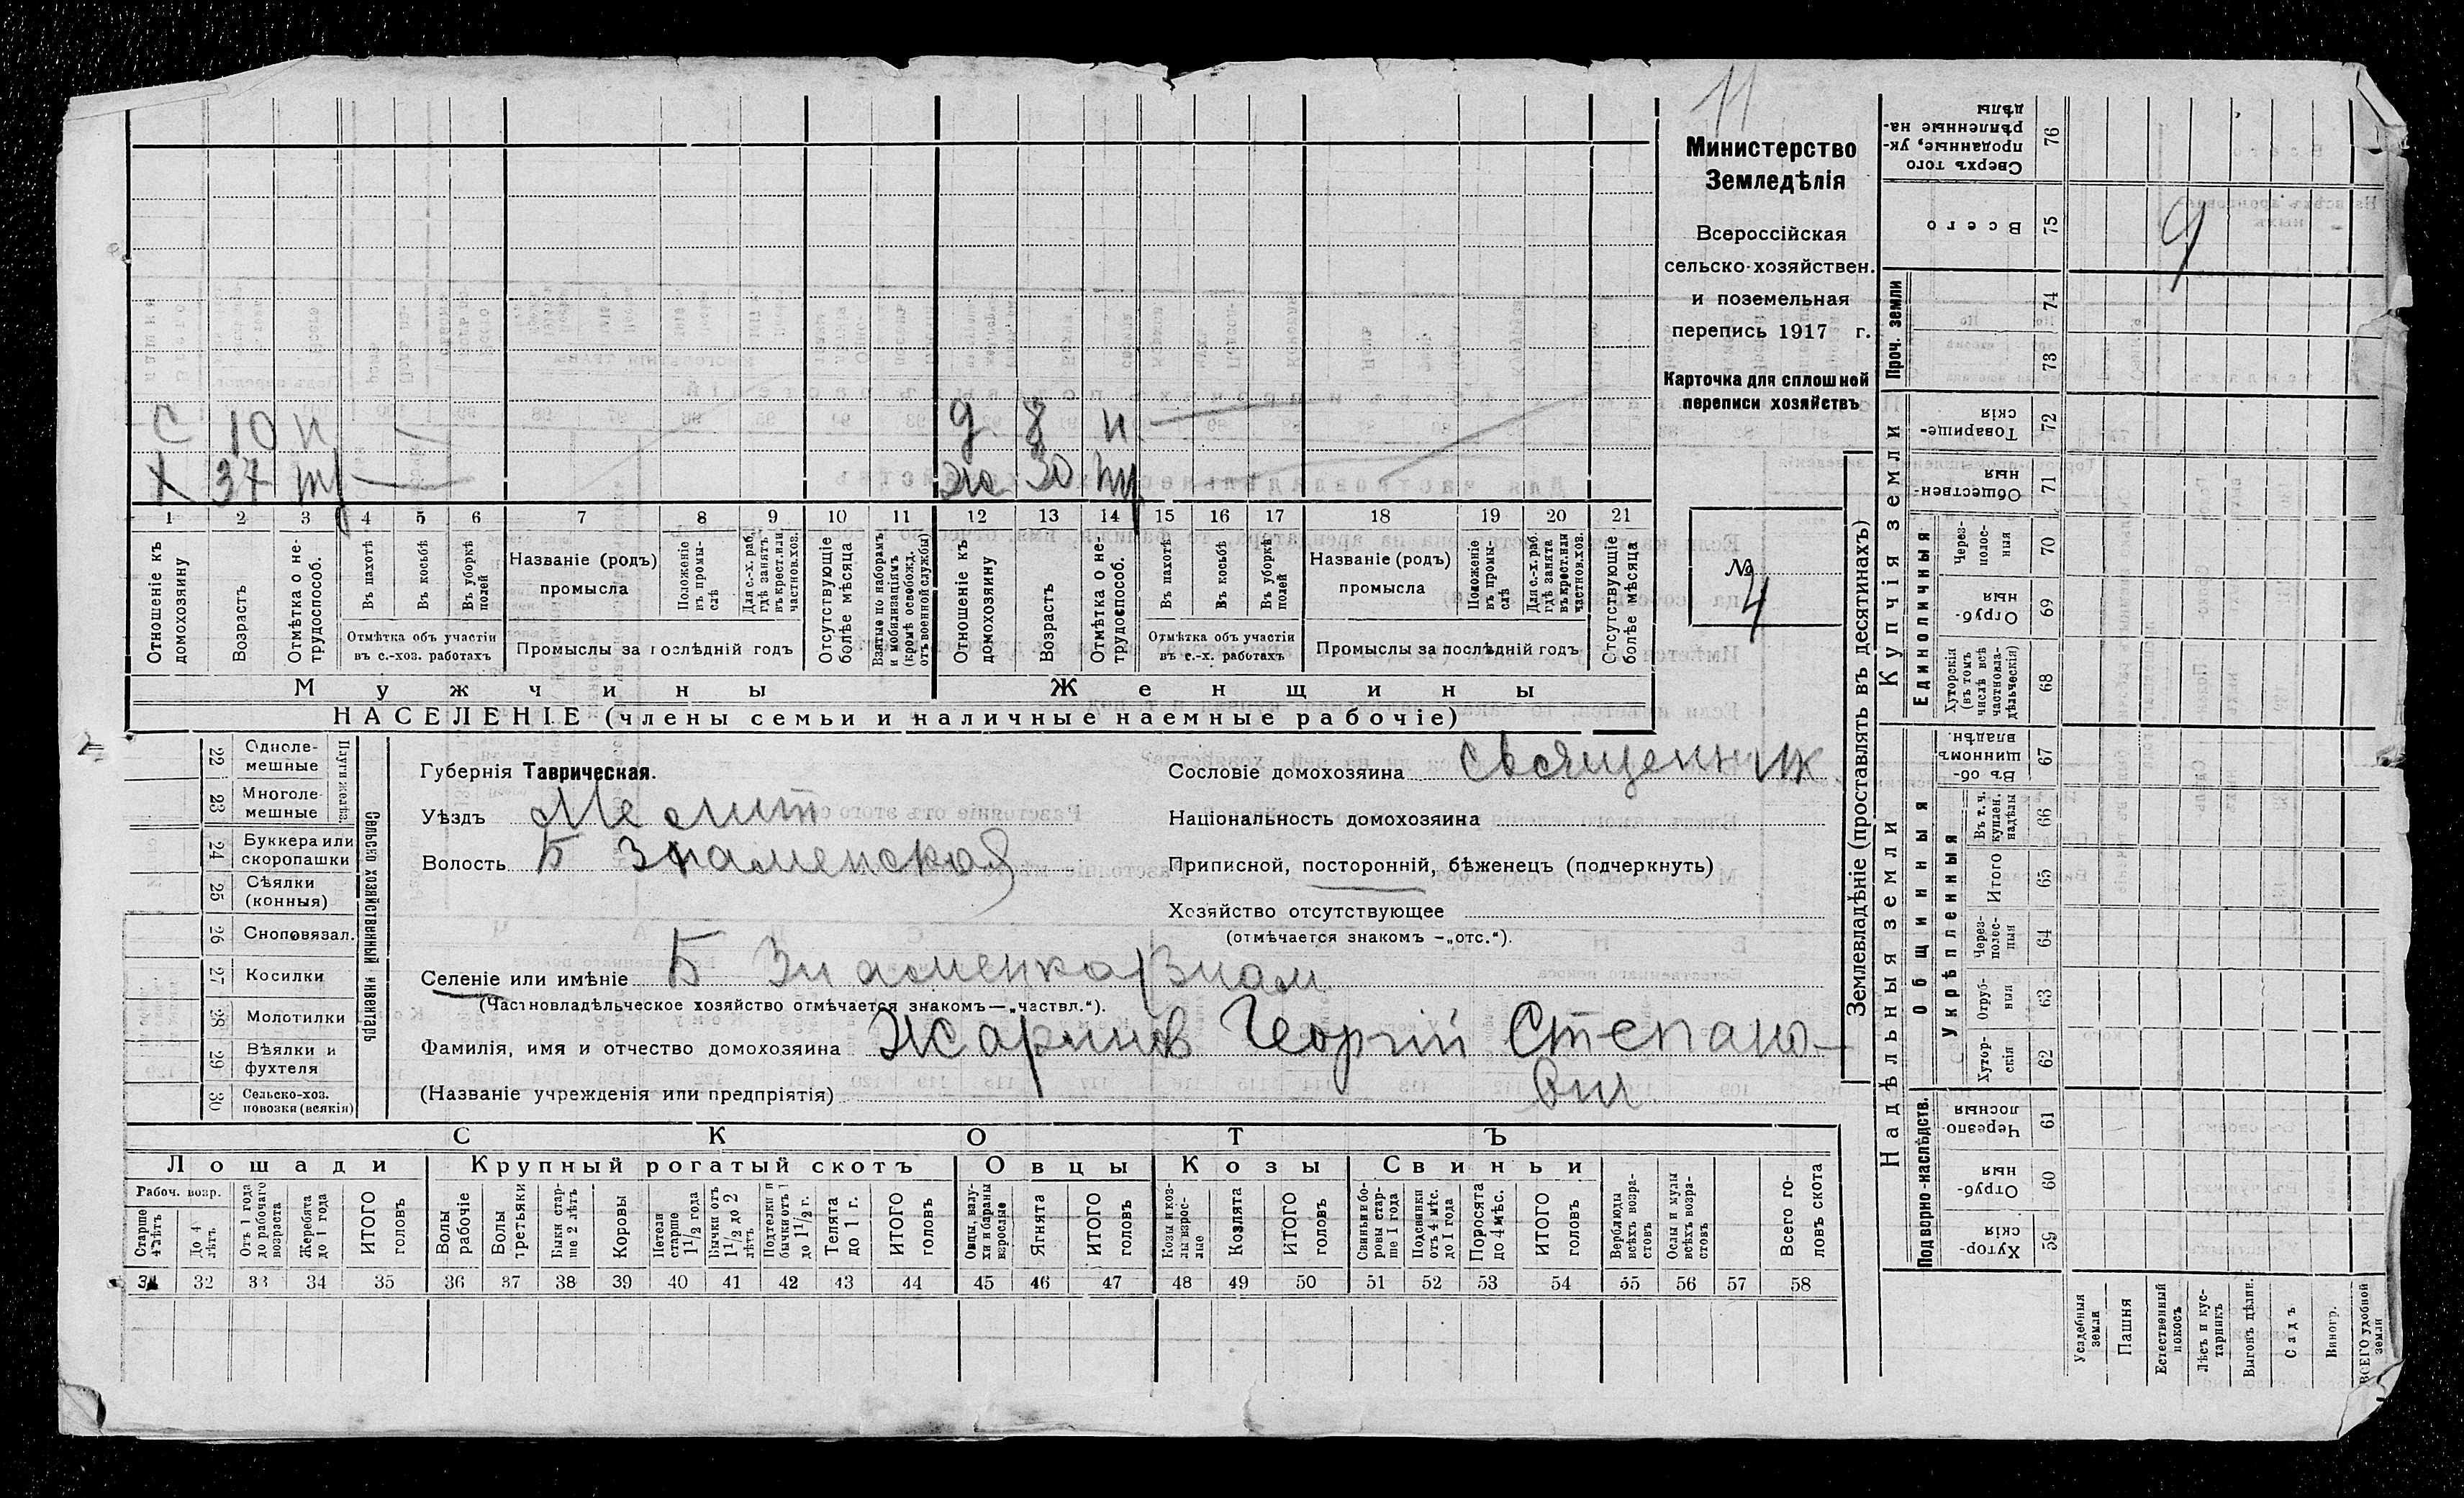 11
Министерство
Земледѣлія
Всероссійская
сельско-хозяйствен.
и поземельная
перепись 1917 г.
Карточка для сплошной
переписи хозяйствъ
№
4
С 10 н
Х 37 тр
д. 8 н.
жо 30 тр
1 2 3 4 5 6 7 8 9 10 11 12 13 14 15 16 17 18 19 20 21
Отношеніе къ домохозяину
Возрастъ
Отмѣтка о не-трудоспособ.
Въ пахотѣ
Въ косьбѣ
Въ уборкѣ полей
Отмѣтка объ участіи
въ с.-хоз. работахъ
Названіе (родъ)
промысла
Положеніе въ промы-слѣ
Для с.-х. раб. гдѣ занятъ въ крест. или частнов. хоз.
Промыслы за послѣдній годъ
Отсутствующіе болѣе мѣсяца
Взятые по наборамъ и мобилизаціямъ (кромѣ освобожд. отъ военной службы)
Отношеніе къ домохозяину
Возрастъ
Отмѣтка о не-трудоспособ.
Въ пахотѣ
Въ косьбѣ
Въ уборкѣ полей
Отмѣтка объ участіи
въ с.-х. работахъ
Названіе (родъ)
промысла
Положеніе въ промы-слѣ
Для с.-х. раб. гдѣ занята въ крест. или частнов. хоз.
Промыслы за послѣдній годъ
Отсутствующіе болѣе мѣсяца
Мужчины
Женщины
НАСЕЛЕНІЕ (члены семьи и наличные наемные рабочіе)
22 Одноле-мешные
23 Многоле-мешные
Плуги желѣз.
24 Буккера или скоропашки
25 Сѣялки (конныя)
26 Сноповязал.
27 Косилки
28 Молотилки
29 Вѣялки и фухтеля
30 Сельско-хоз. повозки (всякія)
Сельско хозяйственный инвентарь
Губернія Таврическая.
Уѣздъ Мелит
Волость Б Знаменская
Селеніе или имѣніе Б Знаменка
(Частновладѣльческое хозяйство отмѣчается знакомъ—„частвл.“).
Фамилія, имя и отчество домохозяина Георгій Степано-
вич
(Названіе учрежденія или предпріятія)
Сословіе домохозяина священник
Національность домохозяина
Приписной, посторонній, бѣженецъ (подчеркнуть)
Хозяйство отсутствующее
(отмѣчается знакомъ —„отс.“).
СКОТЪ
Лошади
Крупный рогатый скотъ
Овцы
Козы
Свиньи
Рабоч. возр.
Старше 4 лѣтъ
До 4 лѣтъ
Отъ 1 года до рабочаго возраста
Жеребята до 1 года
ИТОГО головъ
Волы рабочіе
Волы третьяки
Быки стар-ше 2 лѣтъ
Коровы
Нетели старше 1 1/2 года
Бычки отъ 1 1/2 до 2 лѣтъ
Подтелки и бычки отъ 1 до 1 1/2 г.
Телята до 1 г.
ИТОГО головъ
Овцы, валу-хи и бараны взрослые
Ягнята
ИТОГО головъ
Козы и коз-лы взрос-лые
Козлята
ИТОГО головъ
Свиньи и бо-ровы стар-ше 1 года
Подсвинки отъ 4 мѣс. до 1 года
Поросята до 4 мѣс.
ИТОГО головъ
Верблюды всѣхъ возра-стовъ
Ослы и мулы всѣхъ возра-стовъ
Всего го-ловъ скота
31 32 33 34 35 36 37 38 39 40 41 42 43 44 45 46 47 48 49 50 51 52 53 54 55 56 57 58
Землевладѣніе (проставлять въ десятинахъ)
Надѣльныя земли
Купчія земли
Проч. земли
Подворно-наслѣдств.
Общинныя
Укрѣпленныя
Единоличныя
Хутор-скія 59
Отруб-ныя 60
Черезпо-лосныя 61
Хутор-скія 62
Отруб-ныя 63
Через-полос-ныя 64
Итого 65
Въ т. ч. куплен. надѣлы 66
Въ об-щинномъ владѣн. 67
Хуторскія (въ томъ числѣ всѣ частновла-дѣльческія) 68
Отруб-ныя 69
Через-полос-ныя 70
Обществен-ныя 71
Товарище-скія 72
73
74
Всего 75
Сверхъ того проданные, ук-рѣпленные на-дѣлы 76
Усадебныя земля
Пашня
Естественный покосъ
Лѣсъ и кус-тарникъ
Выгонъ дѣлин.
Садъ
Виногр.
ВСЕГО удобной земли